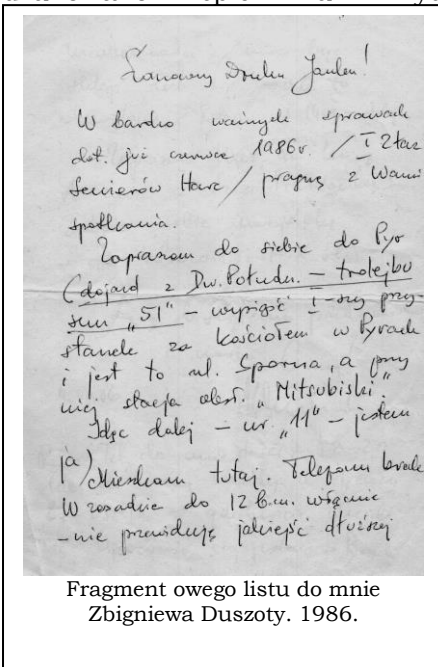 Szanowny Druhu Janku!
W bardzo ważnych sprawach
dot. już czerwca 1986r. / I Zlaz
Seniorów Harc / pragnę z Wami
spotkania.
Zapraszam do siebie do Pyr
(dojazd z Dw. Połudn. – trolejbu
sem „51" – wysiąść I-szy przy-
stanek za kościołem w Pyrach
i jest to ul. Sporna, a przy
niej stacja obsł. „Mitsubiski".
Idąc dalej – nr. „11" – jestem
ja) Mieszkam tutaj. Telefonu brak
W zasadzie do 12 b.m. włącznie
– nie przewiduję jakiejść dłuższej
Fragment owego listu do mnie
Zbigniewa Duszoty. 1986.